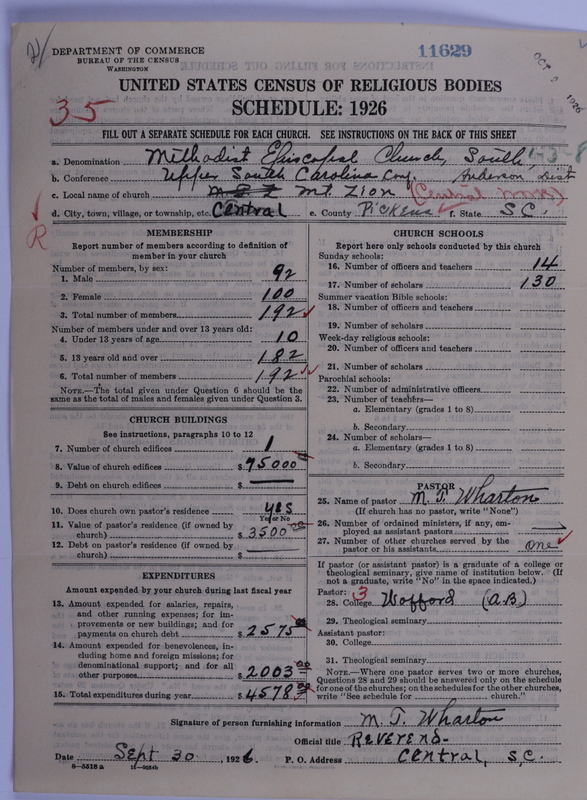 DEPARTMENT OF COMMERCE
BUREAU OF THE CENSUS
WASHINGTON
11629
OCT 1926
UNITED STATES CENSUS OF RELIGIOUS BODIES
SCHEDULE: 1926
35
FILL OUT A SEPARATE SCHEDULE FOR EACH CHURCH. SEE INSTRUCTIONS ON THE BACK OF THIS SHEET
a. Denomination Methodist Episcopal Church, South 1-3-8
b. Conference Upper South Carolina Conf. Anderson Dist
c. Local name of church Mt. Zion
d. City, town, village, or township, etc. Central e. County Pickens f. State S.C.
R
MEMBERSHIP
Report number of members according to definition of member in your church
Number of members, by sex:
1. Male 92
2. Female 100
3. Total number of members 192
Number of members under and over 13 years old:
4. Under 13 years of age 10
5. 13 years old and over 182
6. Total number of members 192
NOTE.—The total given under Question 6 should be
same as the total of males and females given under Question 3.
CHURCH BUILDINGS
See instructions, paragraphs 10 to 12
7. Number of church edifices 1
8. Value of church edifices $ 75000
9. Debt on church edifices $
10. Does church own pastor's residence yes
Yes or No
11. Value of pastor's residence (if owned by
church) $ 3500
12. Debt on pastor's residence (if owned by
church) $
EXPENDITURES
Amount expended by your church during last fiscal year
13. Amount expended for salaries, repairs,
and other running expenses; for im-
provements or new buildings; and for
payments on church debt $ 2575 00
14. Amount expended for benevolences, in-
cluding home and foreign missions; for
denominational support; and for all
other purposes $ 2003 00
15. Total expenditures during year $ 4578 00
CHURCH SCHOOLS
Report here only schools conducted by this church
Sunday schools:
16. Number of officers and teachers 14
17. Number of scholars 130
Summer vacation Bible schools:
18. Number of officers and teachers
19. Number of scholars
Week-day religious schools:
20. Number of officers and teachers
21. Number of scholars
Parochial schools:
22. Number of administrative officers
23. Number of teachers—
a. Elementary (grades 1 to 8)
b. Secondary
24. Number of scholars—
a. Elementary (grades 1 to 8)
b. Secondary
PASTOR
25. Name of pastor M. T. Wharton
(If church has no pastor, write "None")
26. Number of ordained ministers, if any, em-
ployed as assistant pastors
27. Number of other churches served by the
pastor or his assistants one
If pastor (or assistant pastor) is a graduate of a college or
theological seminary, give name of institution below. (If
not a graduate, write "No" in the space indicated.)
Pastor: 3
28. College Wofford (A.B.)
29. Theological seminary
Assistant pastor:
30. College
31. Theological seminary
NOTE.—Where one pastor serves two or more churches,
Questions 28 and 29 should be answered only on the schedule
for one of the churches; on the schedules for the other churches,
write "See schedule for church."
Signature of person furnishing information M. T. Wharton
Official title Reverend
Date Sept 30, 1926 P. O. Address Central, S.C.
8—5318 a